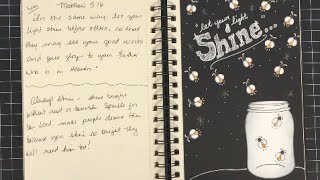 Matthew 5:16
"In the same way, let your
light shine before others, so that
they may see your good works
and give glory to your Father
who is in Heaven."
Always Shine - shine bright
without need or towards. Sparkle for
the Lord. make people desire this
because you shine so bright they
will need him too!
"let your light
Shine...